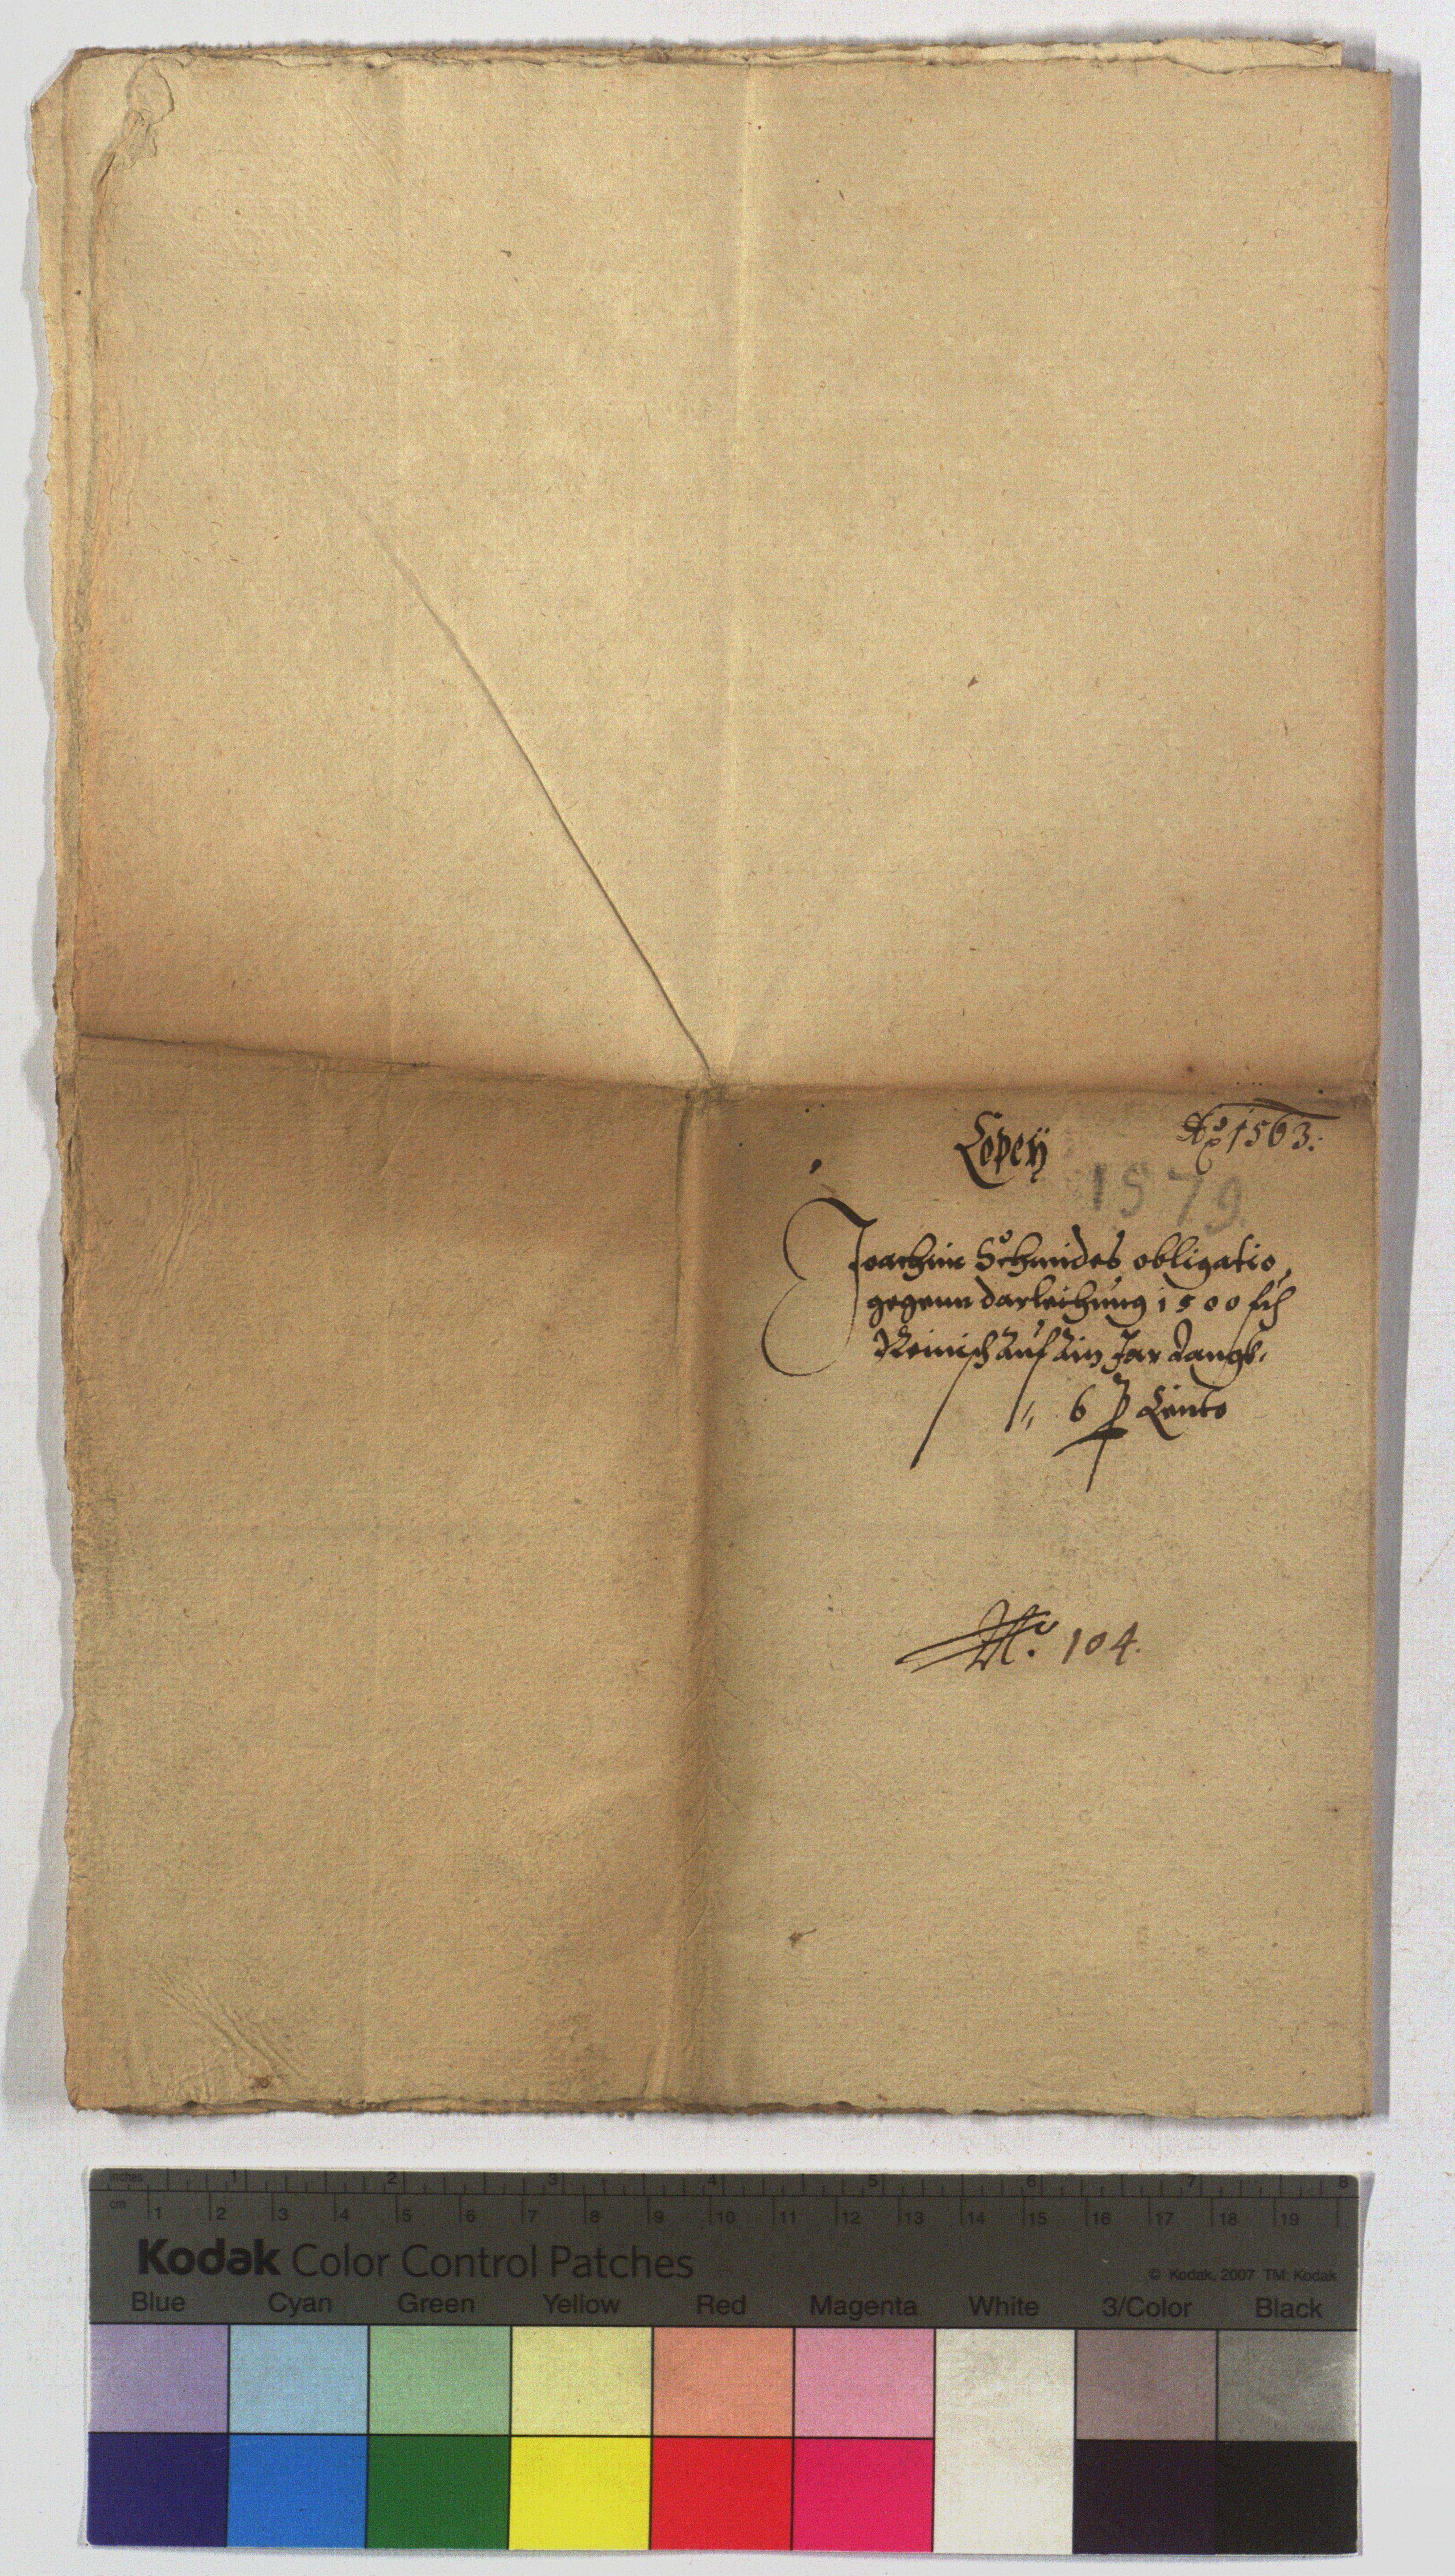 Copeÿ
Aº 1563.
1579.
Joachim Schmides obligatio,
gegenn darleichung 1500 fl
Reinisch auf ain Jar lang
6 P Cento
Nº. 104.
inches 1 2 3 4 5 6 7 8
cm 1 2 3 4 5 6 7 8 9 10 11 12 13 14 15 16 17 18 19
Kodak Color Control Patches
© Kodak, 2007 TM: Kodak
Blue Cyan Green Yellow Red Magenta White 3/Color Black